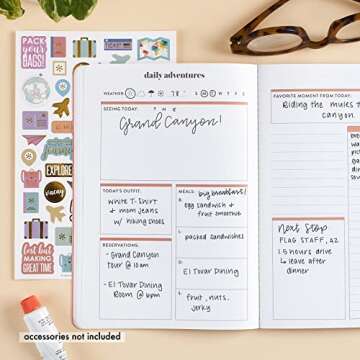 PACK
YOUR
BAGS!
TICKET
EXPLORE
vacay
lost but
MAKING
GREAT TIME
accessories not included
daily adventures
WEATHER:
S M T W T F S
SEEING TODAY:
THE
Grand Canyon!
TODAY'S OUTFIT:
white T-Shirt
& mom jeans
w/ hiking shoes
RESERVATIONS:
- Grand Canyon
tour @ 10 am
- El Tovar Dining
Room @ 6pm
MEALS: big breakfast!
B. egg sandwich &
fruit smoothie
L. packed sandwiches
D. El Tovar Dining
S. fruit, nuts,
jerky
FAVORITE MOMENT FROM TODAY:
Riding the mules t
canyon.
Next Stop
FLAG STAFF, AZ
1.5 hours drive
↳ leave after
dinner